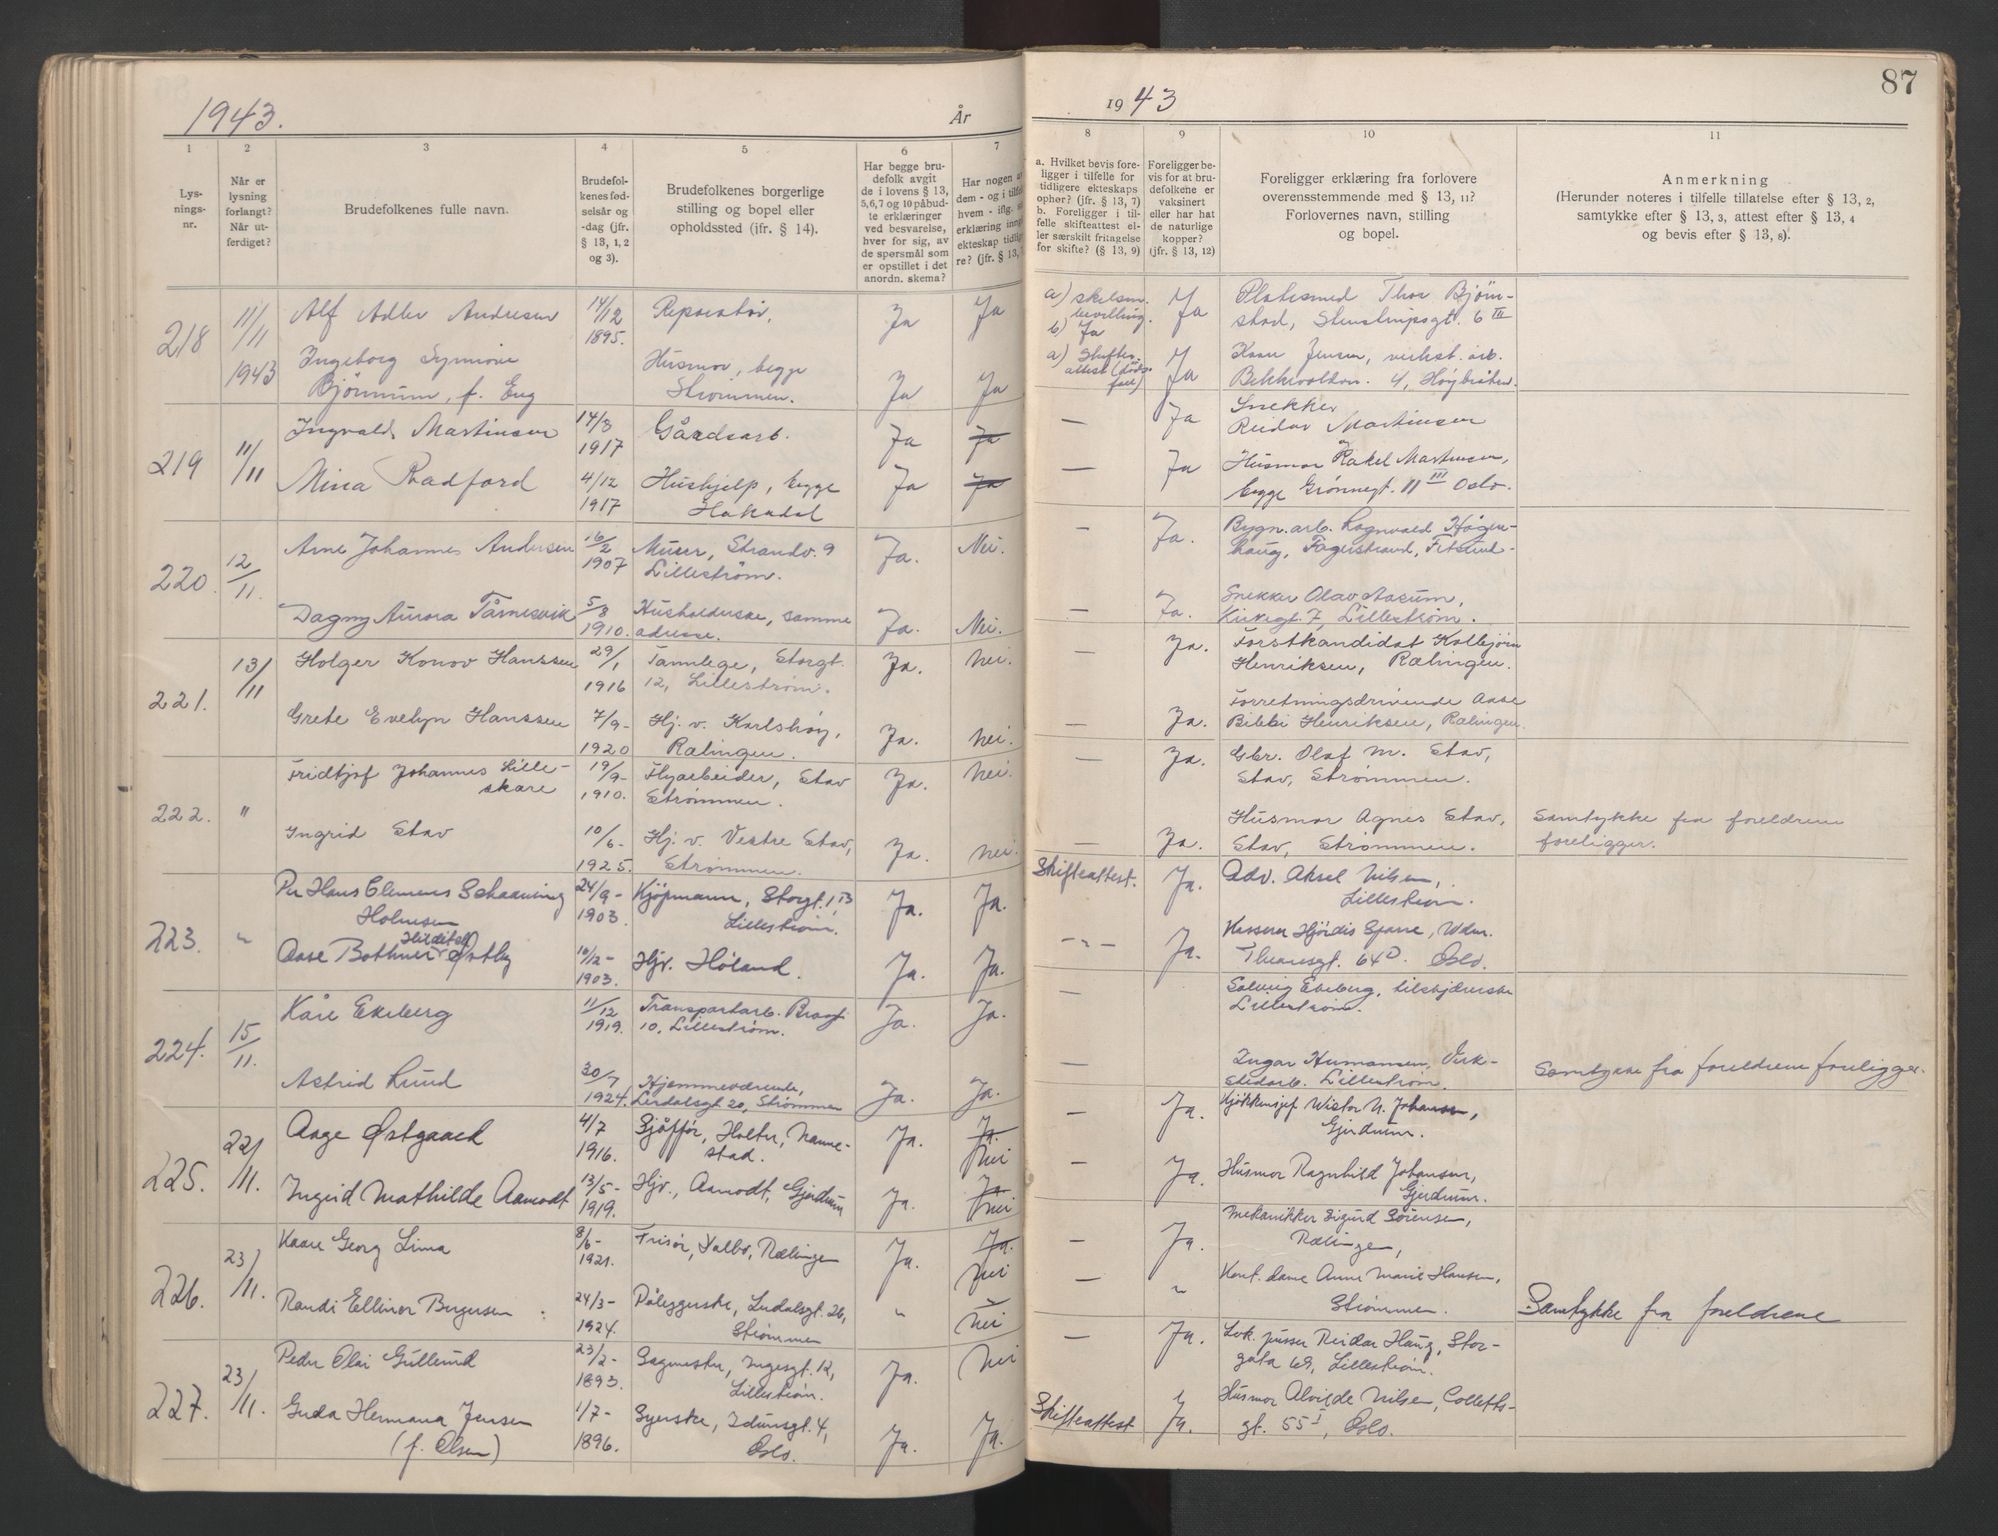 1943.
År
1
2
3
4
5
6
7
Lys-
nings-
nr.
Når er
lysning
forlangt?
Når ut-
ferdiget?
Brudefolkenes fulle navn.
Brudefol-
kenes fød-
selsår og
-dag (jfr.
§ 13, 1, 2
og 3).
Brudefolkenes borgerlige
stilling og bopel eller
opholdssted (jfr. § 14).
Har begge bru-
defolk avgit
de i lovens § 13,
5, 6, 7 og 10 påbud-
te erklæringer
ved besvarelse,
hver for sig, av
de spørsmål som
er opstillet i det
anordn. skema?
Har nogen a
dem - og i tilfel
hvem - iflg. si
erklæring inng
ekteskap tidlig
re? (jfr. § 13,
218
11/11
1943
Alf Adler Andresen
14/12
1895.
Reparatør,
Ja
Ja
Ingeborg Synnøve
Bjørnum, f. Eng
Husmor, begge
Strømmen.
Ja
Ja
219
11/11
Ingvald Martinsen
14/3
1917
Gårdsarb.
Ja
Ja
Mina Radford
4/12
1917
Hushjelp, begge
Hakadal
Ja
Ja
220.
12/11.
Arne Johannes Andersen
16/2
1907
Murer, Strandv. 9
Lillestrøm.
Ja.
Nei.
Dagny Aurora Tårnesvik
5/8
1910.
Husholderske, samme
adresse.
Ja.
Nei.
221.
13/11
Holger Konov Hanssen
29/1
1916
Tannlege, Storgt.
12, Lillestrøm.
Ja.
Nei.
Grete Evelyn Hanssen
7/9-
1920
Hj. v. Karlshøy,
Rælingen.
Ja.
Nei.
222.
"
Fridtjof Johannes Lille-
skare
19/9-
1910.
Flyarbeider, Stav
Strømmen.
Ja.
Nei.
Ingrid Stav
10/6-
1925.
Hj. v. Vestre Stav,
Strømmen.
Ja.
Nei.
223.
"
Per Hans Clemens Schaanning
Holmsen
24/9-
1903.
Kjøpmann, Storgt. 1, B
Lillestrøm.
Ja.
Ja.
Aase Bothner Østby
10/12-
1903.
Hjv. Høland.
Ja.
Ja.
224.
15/11.
Kåre Ekeberg
11/12
1919.
Transportarb.
10, Lillestrøm.
Ja.
Ja.
Astrid Lund
30/7
1924.
Hjemmeværende,
Lerdalsgt 20, Strømmen
Ja.
Ja.
225.
22/11.
Aage Østgaard
4/7
1916.
Sjåffør, Holter, Nanne-
stad.
Ja.
Ja.
Nei
Ingrid Mathilde Aamodt
13/5-
1919.
Hjv., Aamodt, Gjerdrum
Ja.
Ja
Nei
226.
23/11.
Kaare Georg Lima
8/6-
1921.
Frisør, Rælingen
Ja.
Ja.
Nei
Randi Ellinor Bergersen
24/3-
1924.
Påleggerske, Lerdalsgt. 26,
Strømmen
"
Nei
227.
23/11.
Peder Olai Gullerud
23/2-
1893.
Sagmester, Ingesgt. 12,
Lillestrøm.
Ja.
Nei
Guda Hermana Jensen
(f. Olsen)
1/7-
1896.
Syerske, Idunsgt. 4,
Oslo.
Ja.
Ja.
87
1943
8
9
10
11
a. Hvilket bevis fore-
ligger i tilfelle for
tidligere ekteskaps
ophør? (jfr. § 13, 7)
b. Foreligger i til-
felle skifteattest el-
ler særskilt fritagelse
for skifte? (§ 13, 9)
Foreligger be-
vis for at bru-
defolkene er
vaksinert
eller har hat
de naturlige
kopper?
(jfr. § 13, 12)
Foreligger erklæring fra forlovere
overensstemmende med § 13, 11?
Forlovernes navn, stilling
og bopel.
Anmerkning
(Herunder noteres i tilfelle tillatelse efter § 13, 2,
samtykke efter § 13, 3, attest efter § 13, 4
og bevis efter § 13, 8).
a) skilsm.
bevilling.
b) Ja
Ja
Platesmed Thor Bjørn-
stad, Stenstrupsgt. 6 III
a) Skifte-
attest (døds-
fall)
Ja
Kaare Jensen, verkst. arb.
4, Høybråten.
—
Ja
Snekker
Reidar Martinsen
—
Ja
Husmor Rakel Martinsen,
begge Grønnegt. 11 III Oslo.
—
Ja.
Bygn.arb. Ragnvald Høgen-
haug, Fagerstrand,
—
Ja.
Snekker Olav Aasum,
Kirkegt. 7, Lillestrøm.
—
Ja.
Forstkandidat Kolbjørn
Henriksen, Rælingen.
—
Ja.
Forretningsdrivende Aase
Bibbi Henriksen, Rælingen.
—
Ja.
Gbr. Olaf M. Stav,
Stav, Strømmen.
—
Ja.
Husmor Agnes Stav,
Stav, Strømmen.
Samtykke fra foreldrene
foreligger.
Skifteattest.
Ja.
Adv. Aksel Nilsen,
Lillestrøm.
- " -
Ja.
Hjørdis Sparre,
Theresgt. 64D. Oslo.
—
Solveig Ekeberg, tilskjærerske
Lillestrøm.
—
Ingar Hermansen, Verk-
stedarb. Lillestrøm.
Samtykke fra foreldrene foreligger.
—
Ja.
Kjøkkensjef Wictor N. Johansen,
Gjerdrum.
—
Ja.
Husmor Ragnhild Johansen,
Gjerdrum.
—
Ja.
Mekanikker Sigurd Sørensen,
Rælingen,
—
"
Kont. dame Anne Marie Hansen,
Strømmen.
Samtykke fra foreldrene
—
Ja.
Lok. pusser Reidar Haug, Stor-
gata 69, Lillestrøm.
Skifteattest
Ja.
Husmor Alvilde Nilsen, Colletts-
gt. 55 I, Oslo.